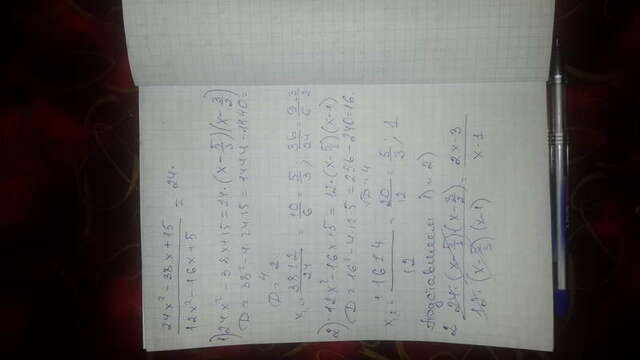 24x² - 38x + 15 / 12x² - 16x + 5 = 24.
1) 24x² - 38x + 15 = 24 · (x - 5/3)(x - 3/2)
D = 38² - 4 · 24 · 15 = 1444 - 1440 =
D = 4 2
x₁ = 38 ± 2 / 24 = 10/6 = 5/3 ; 36/24 = 9/6 = 3/2
2) 12x² - 16x + 5 = 12 · (x - 5/3)(x - 1)
D = 16² - 4 · 12 · 5 = 256 - 240 = 16.
√D = 4
x₂ = 16 ± 4 / 12 = 20/12 = 5/3 ; 1
Подставляем 1) и 2)
2 24 · (x - 5/3)(x - 3/2) / 12 · (x - 5/3)(x - 1) = 2x - 3 / x - 1